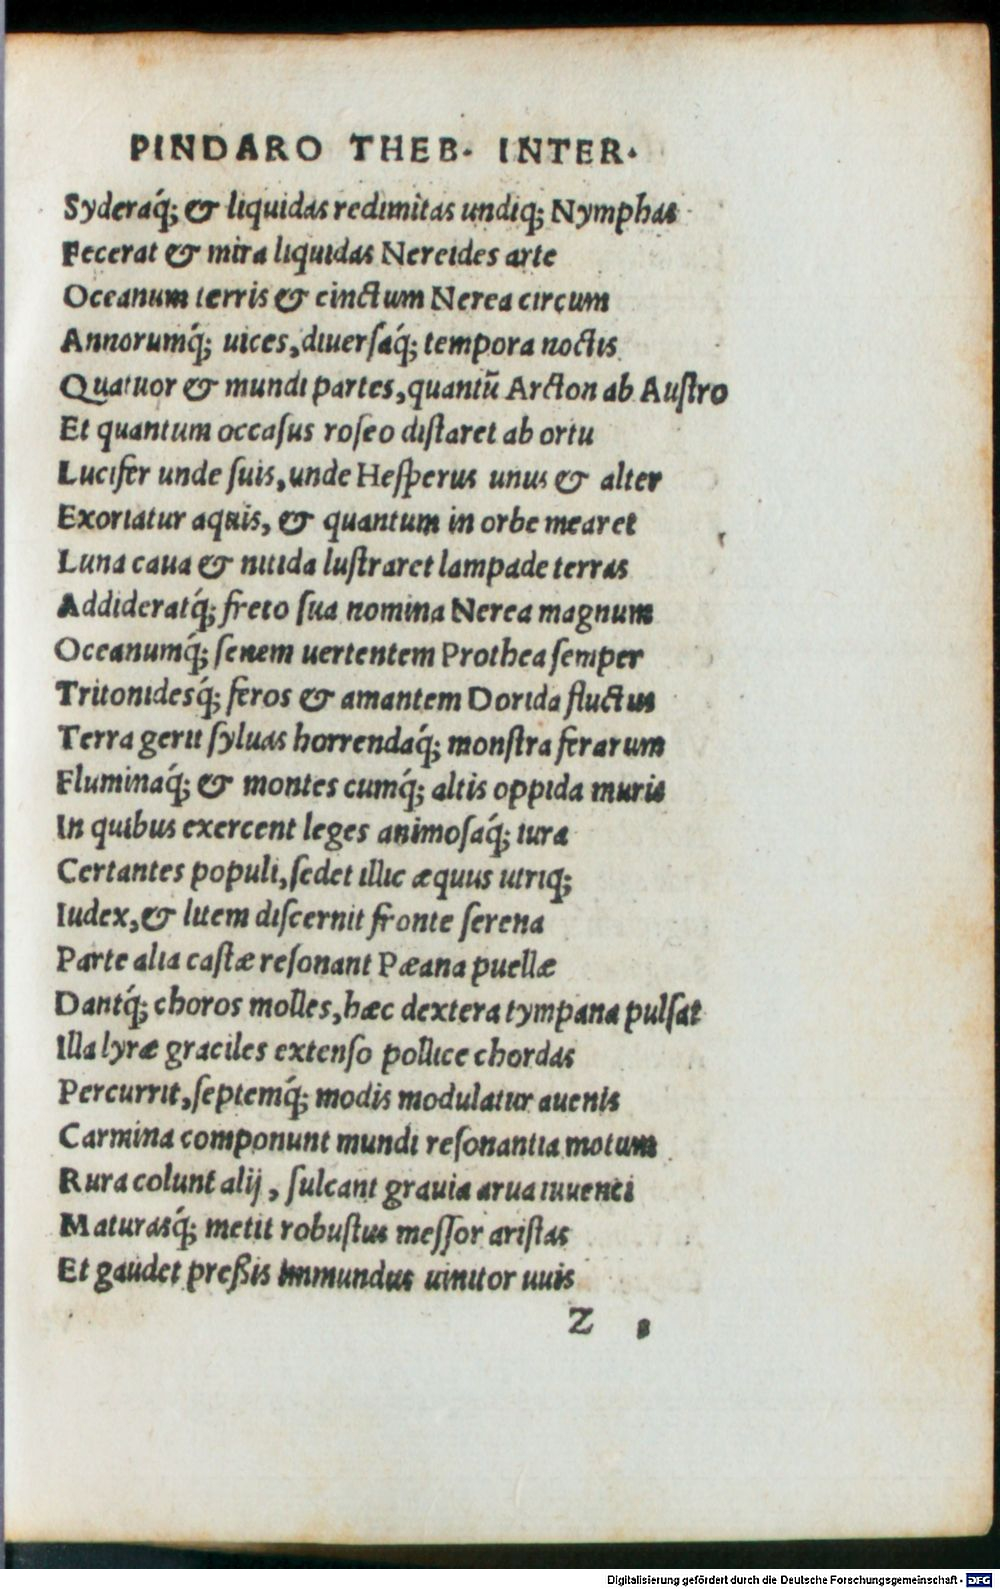 PINDARO THEB. INTER.
Syderaq́; & liquidas redimitas undiq; Nymphas
Fecerat & mira liquidas Nereides arte
Oceanum terris & cinctum Nerea circum
Annorumq́; uices, diuersaq́; tempora noctis
Quatuor & mundi partes, quantũ Arcton ab Austro
Et quantum occasus roseo distaret ab ortu
Lucifer unde suis, unde Hesperus unus & alter
Exoriatur aquis, & quantum in orbe mearet
Luna caua & nitida lustraret lampade terras
Addideratq́; freto sua nomina Nerea magnum
Oceanumq́; senem uertentem Prothea semper
Tritonidesq́; feros & amantem Dorida fluctus
Terra gerit syluas horrendaq́; monstra ferarum
Fluminaq́; & montes cumq́; altis oppida muris
In quibus exercent leges animosaq́; iura
Certantes populi, sedet illic æquus utriq;
Iudex, & litem discernit fronte serena
Parte alia castæ resonant Pæana puellæ
Dantq́; choros molles, hæc dextera tympana pulsat
Illa lyræ graciles extenso pollice chordas
Percurrit, septemq́; modis modulatur auenis
Carmina componunt mundi resonantia motum
Rura colunt alij, sulcant grauia arua iuuenci
Maturasq́; metit robustus messor aristas
Et gaudet preßis immundus uinitor uuis
Z
Digitalisierung gefördert durch die Deutsche Forschungsgemeinschaft - DFG